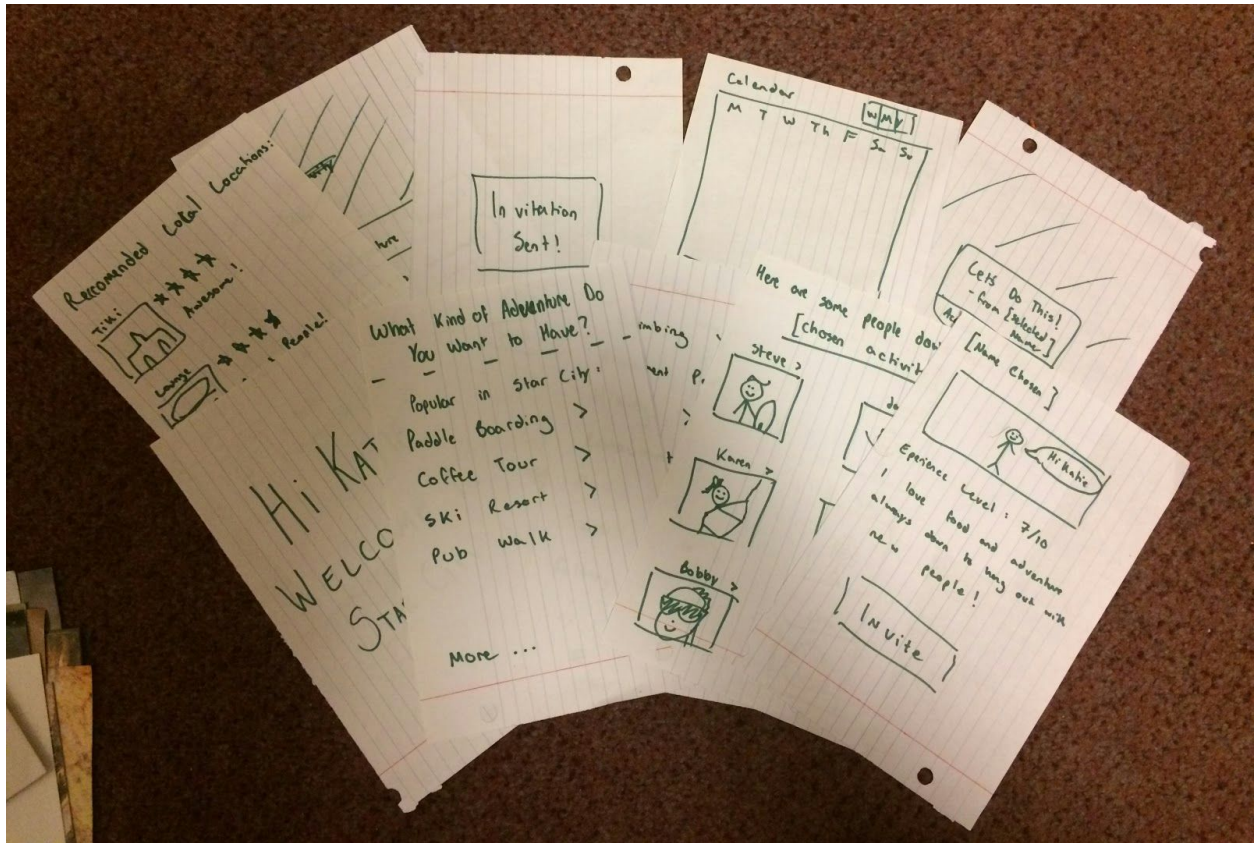 Reccomended Local Locations:
Tiki
Awesome!
Lounge
People!
Invitation
Sent!
Calendar
W M Y
M T W Th F Sa Su
Lets Do This!
- from [selected
Name]
Hi KAT
WELCO
STA
What Kind of Adventure Do
You Want to Have?
Popular in Star City:
Paddle Boarding >
Coffee Tour >
Ski Resort >
Pub Walk >
More ...
imbing
Here are some people dow
[chosen activit
Steve >
Karen >
Bobby >
[Name Chosen]
Hi Katie
Eperience Level: 7/10
I love food and adventure
always down to hang out with
new people!
Invite